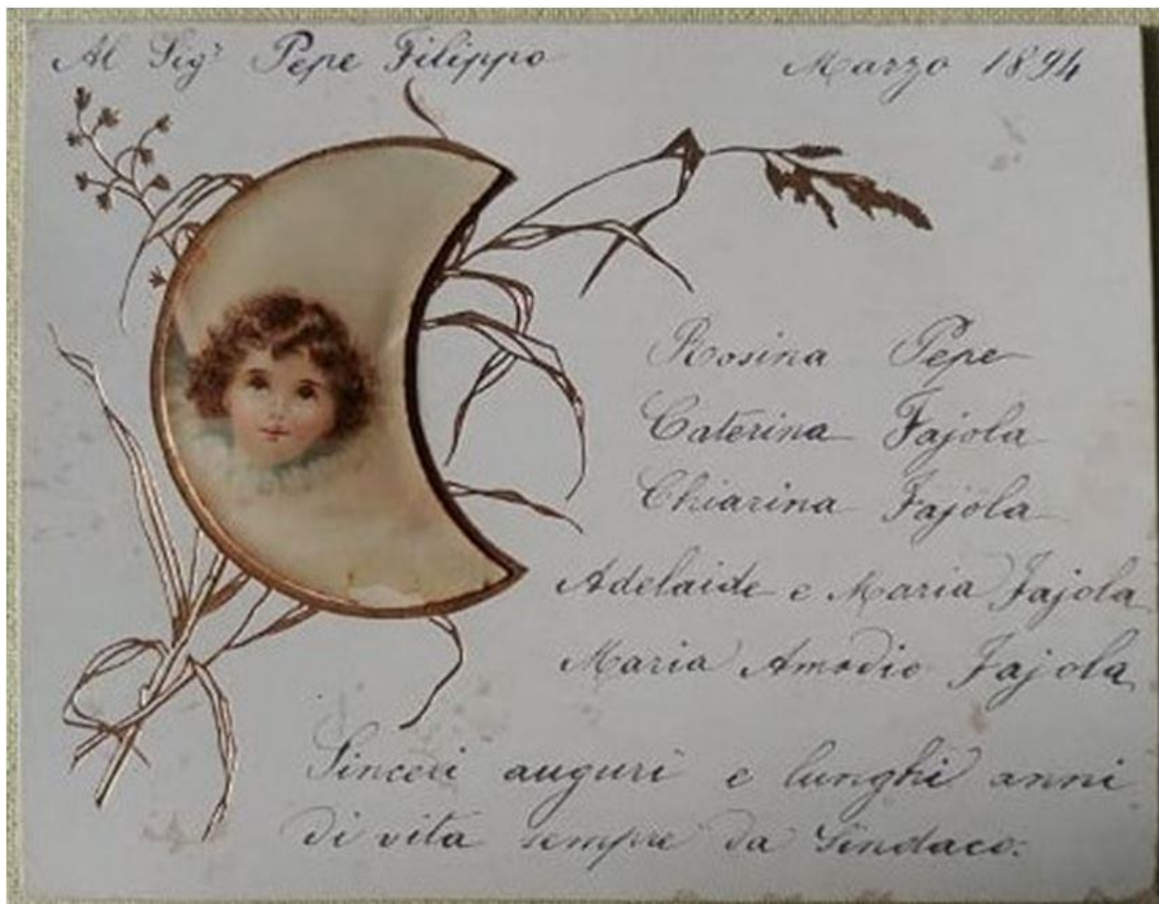 Al Sigʳ Pepe Filippo
Marzo 1894
Rosina Pepe
Caterina Fajola
Chiarina Fajola
Adelaide e Maria Fajola
Maria Amodio Fajola
Sinceri auguri e lunghi anni
di vita sempre da Sindaco.